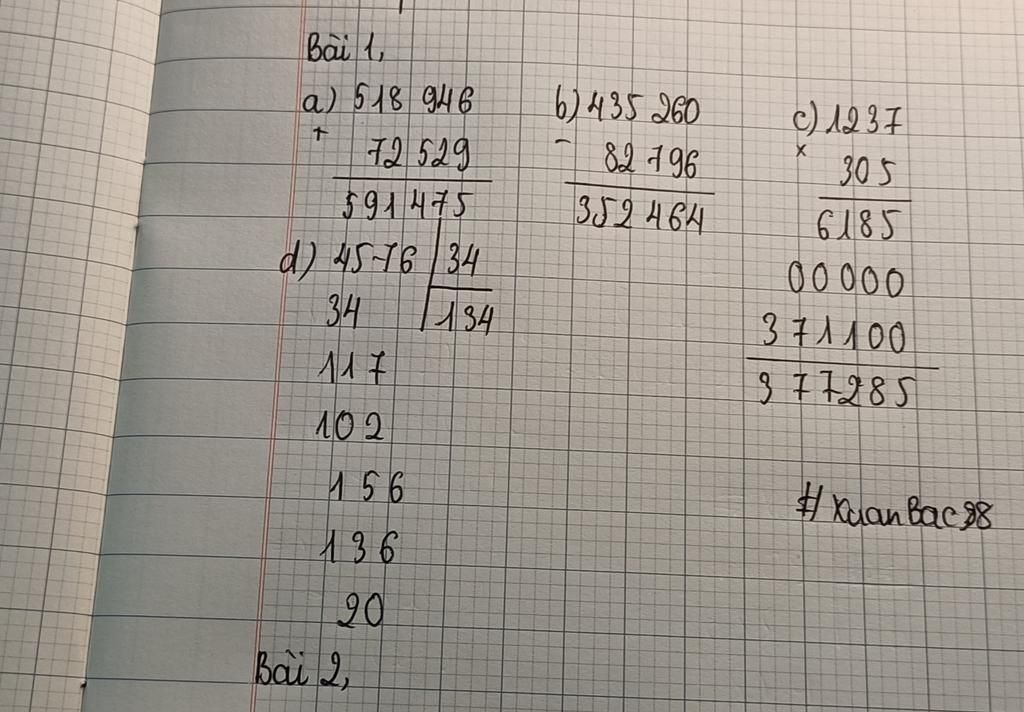 Bài 1,
a) 518 946 b) 435 260 c) 1237
+ 72 529 - 82 796 x 305
591 475 352 464 6185
d) 4576 34 00000
34 134 371100
117 377285
102
156 #XuanBac98
136
20
Bài 2,